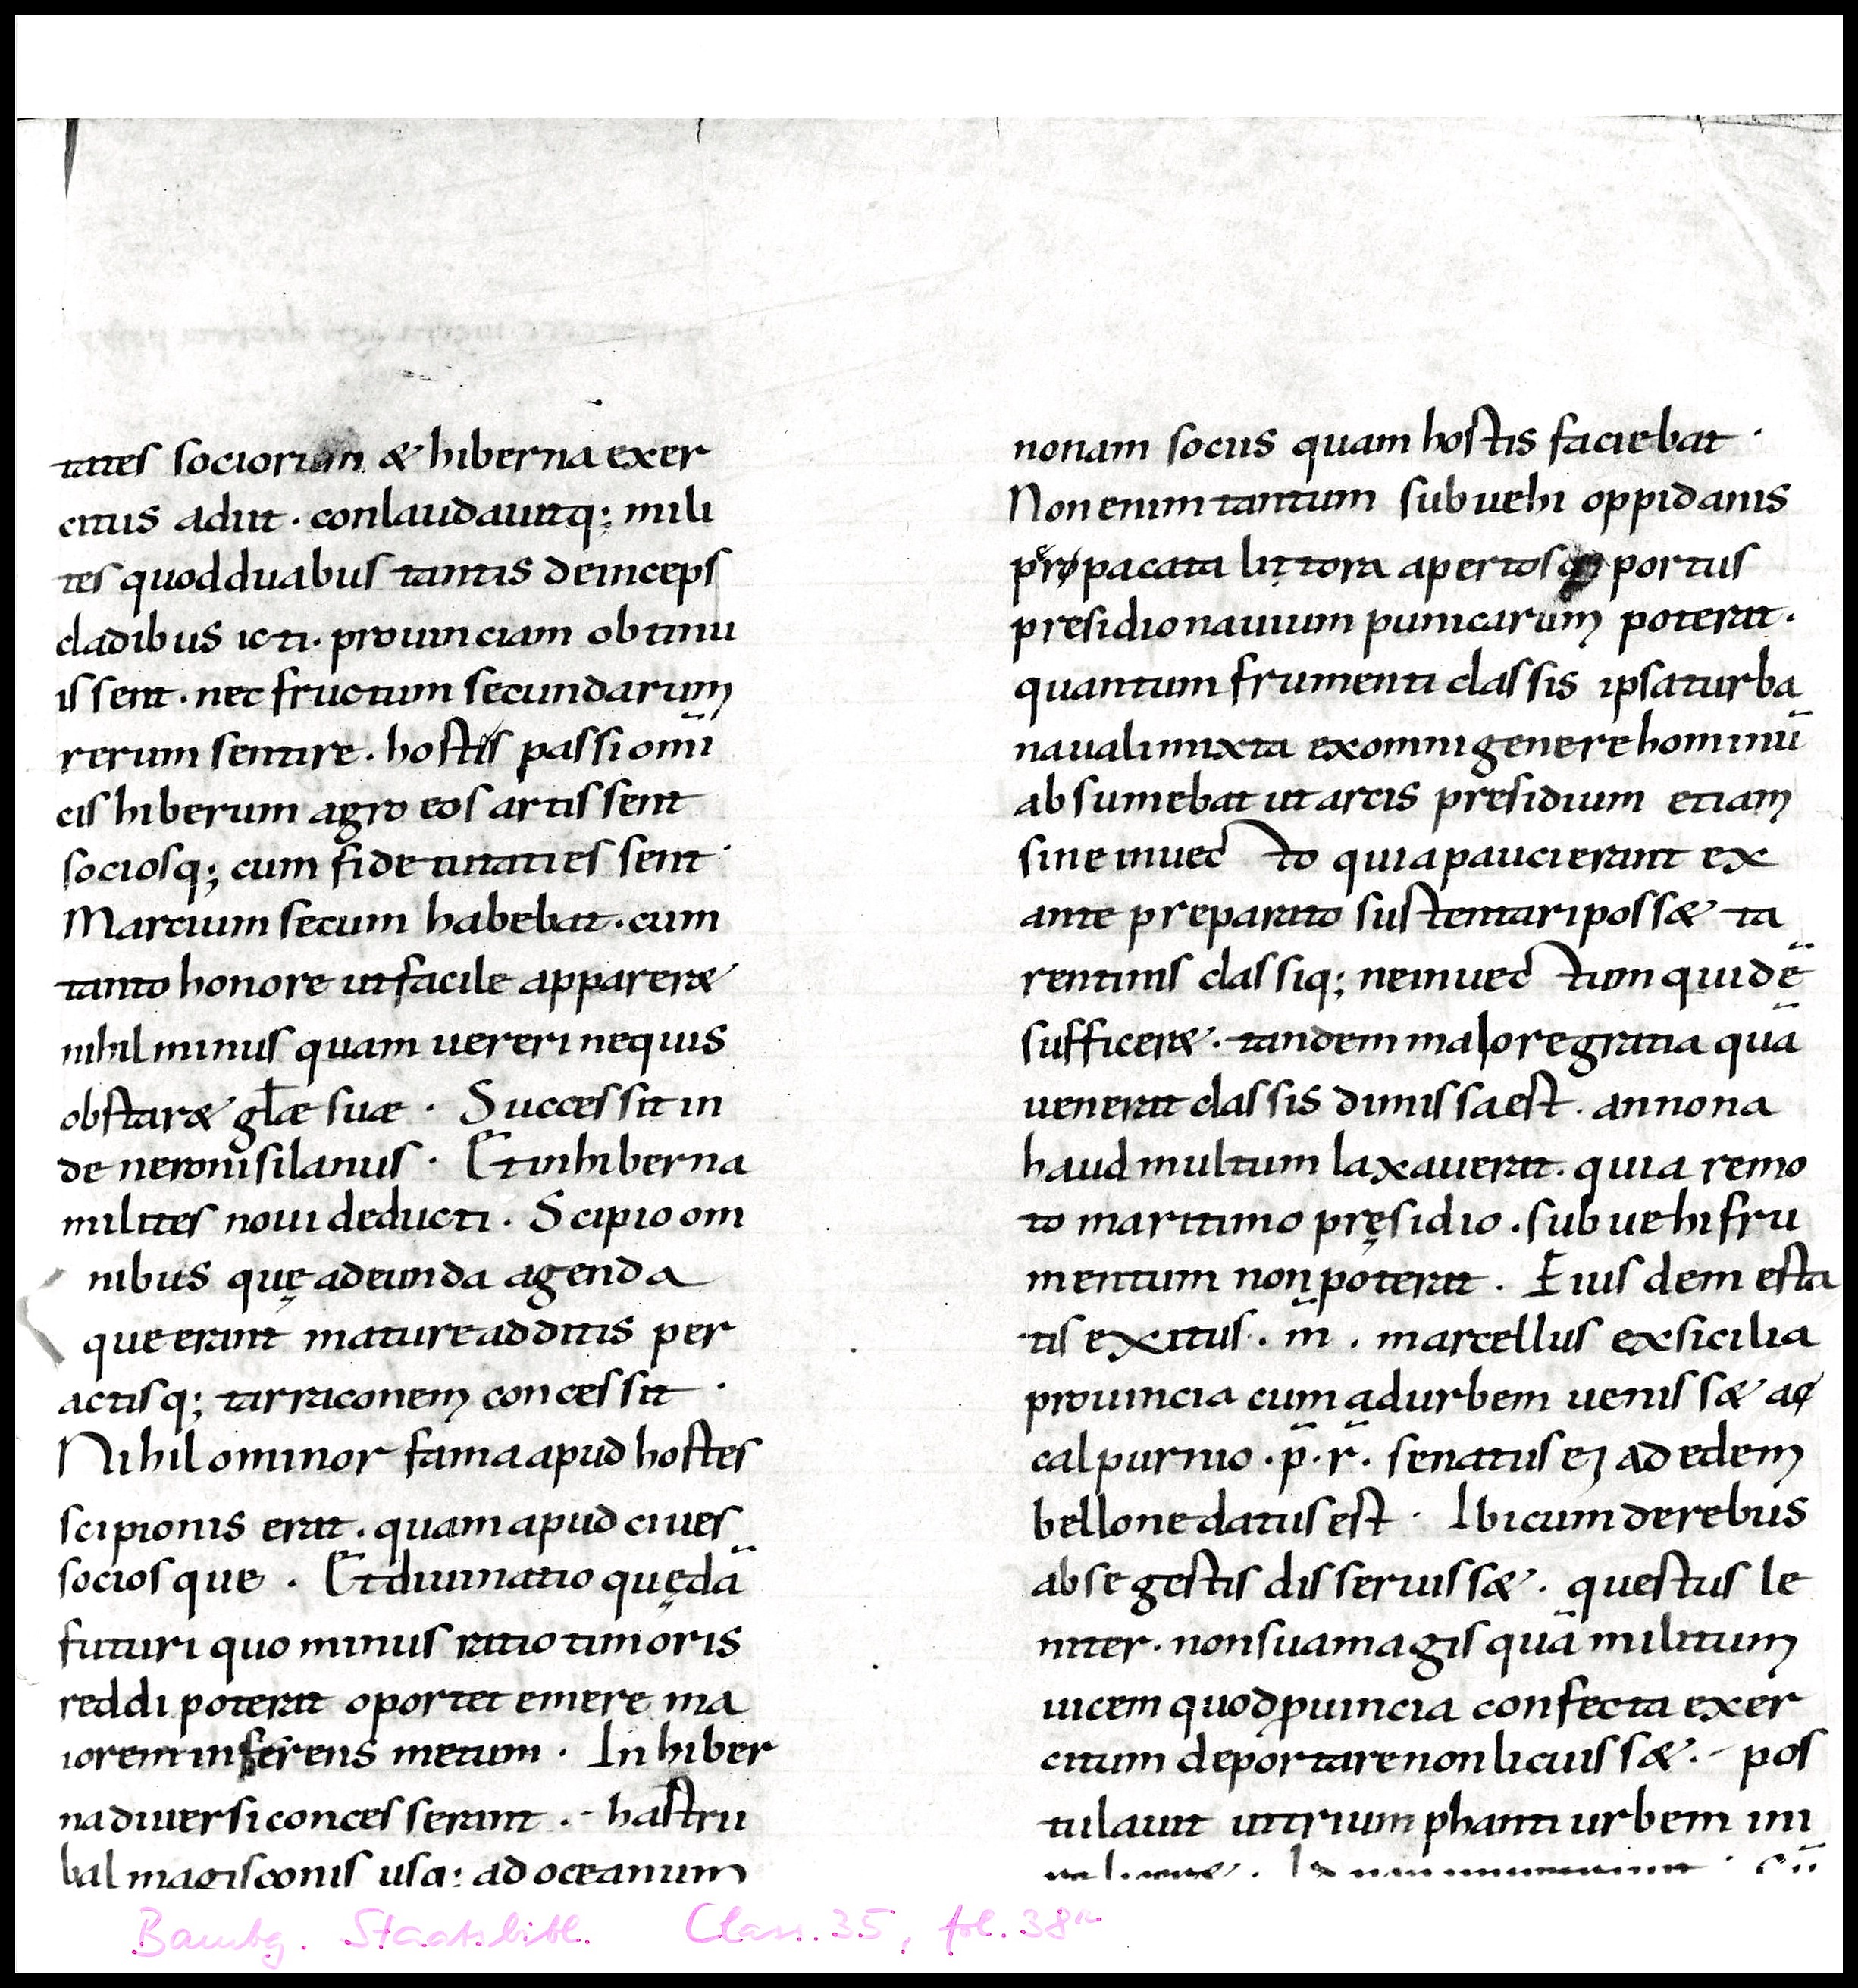 tates sociorum & hiberna exer
citus adiit · conlaudauitq; mili
tes quod duabus tantis deinceps
cladibus icti · prouinciam obtinu
issent · nec fructum secundarum
rerum sentire · hostis passi omi
cis hiberum agro eos artissent
sociosq; cum fide tutati essent ·
Marcium secum habebat · cum
tanto honore ut facile apparer&
nihil minus quam uereri nequis
obstar& glæ suæ · Successit in
de neroni silanus · Et in hiberna
milites noui deducti · Scipio om
nibus quę adeunda agenda
que erant mature additis per
actisq; tarraconem concessit ·
Nihilo minor fama apud hostes
scipionis erat · quam apud ciues
socios que · Et diuinatio quędā
futuri quo minus ratio timoris
reddi poterat oportet emere ma
iorem inferens metum · In hiber
na diuersi concesserant · hastru
bal magisconis usq: ad oceanum
nonam sociis quam hostis faciebat ·
Non enim tantum subuehi oppidanis
pro pacata littora apertosq portus
presidio nauium punicarum poterat ·
quantum frumenti classis ipsa turba
nauali mixta ex omni genere hominū
absumebat ut arcis presidium etiam
sine inuec to quia pauci erant ex
ante preparato sustentari poss& ta
rentinis classiq; ne inuec tum quidē
sufficer& · tandem maiore gratia quā
uenerat classis dimissa est · annona
haud multum laxauerat · quia remo
to maritimo pręsidio · subuehi fru
mentum non poterat · Eiusdem esta
tis exitus · m · marcellus ex sicilia
prouincia cum ad urbem ueniss& ac
calpurnio · p · r · senatus ej ad edem
bellone datus est · Ibi cum de rebus
ab se gestis disseruiss& · questus le
niter · non sua magis quā militum
uicem quod ꝓuincia confecta exer
citum deportare non licuiss& · pos
tulauit ut triumphanti urbem ini
Bambg. Staatsbibl. Class. 35, fol. 38r